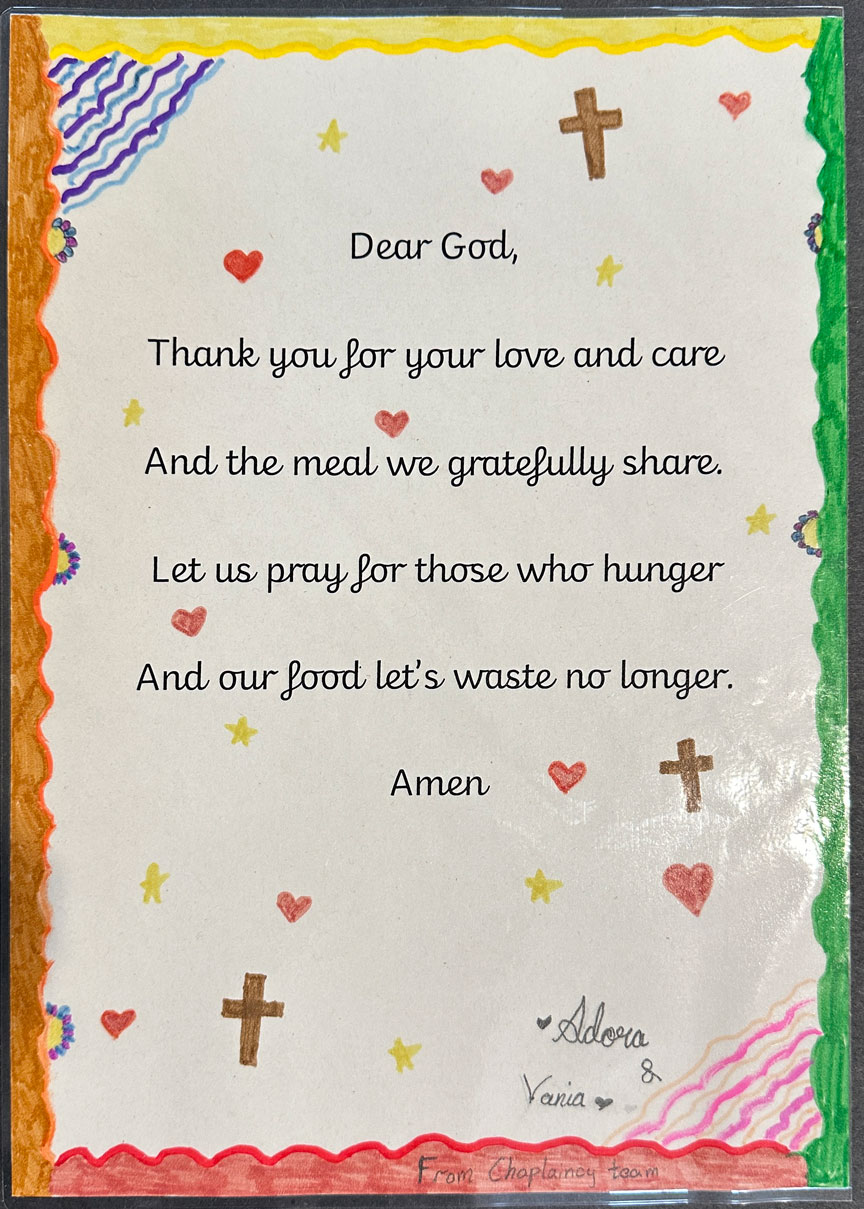 Dear God,
Thank you for your love and care
And the meal we gratefully share.
Let us pray for those who hunger
And our food let's waste no longer.
Amen
Adora
&
Vania
From Chaplaincy team